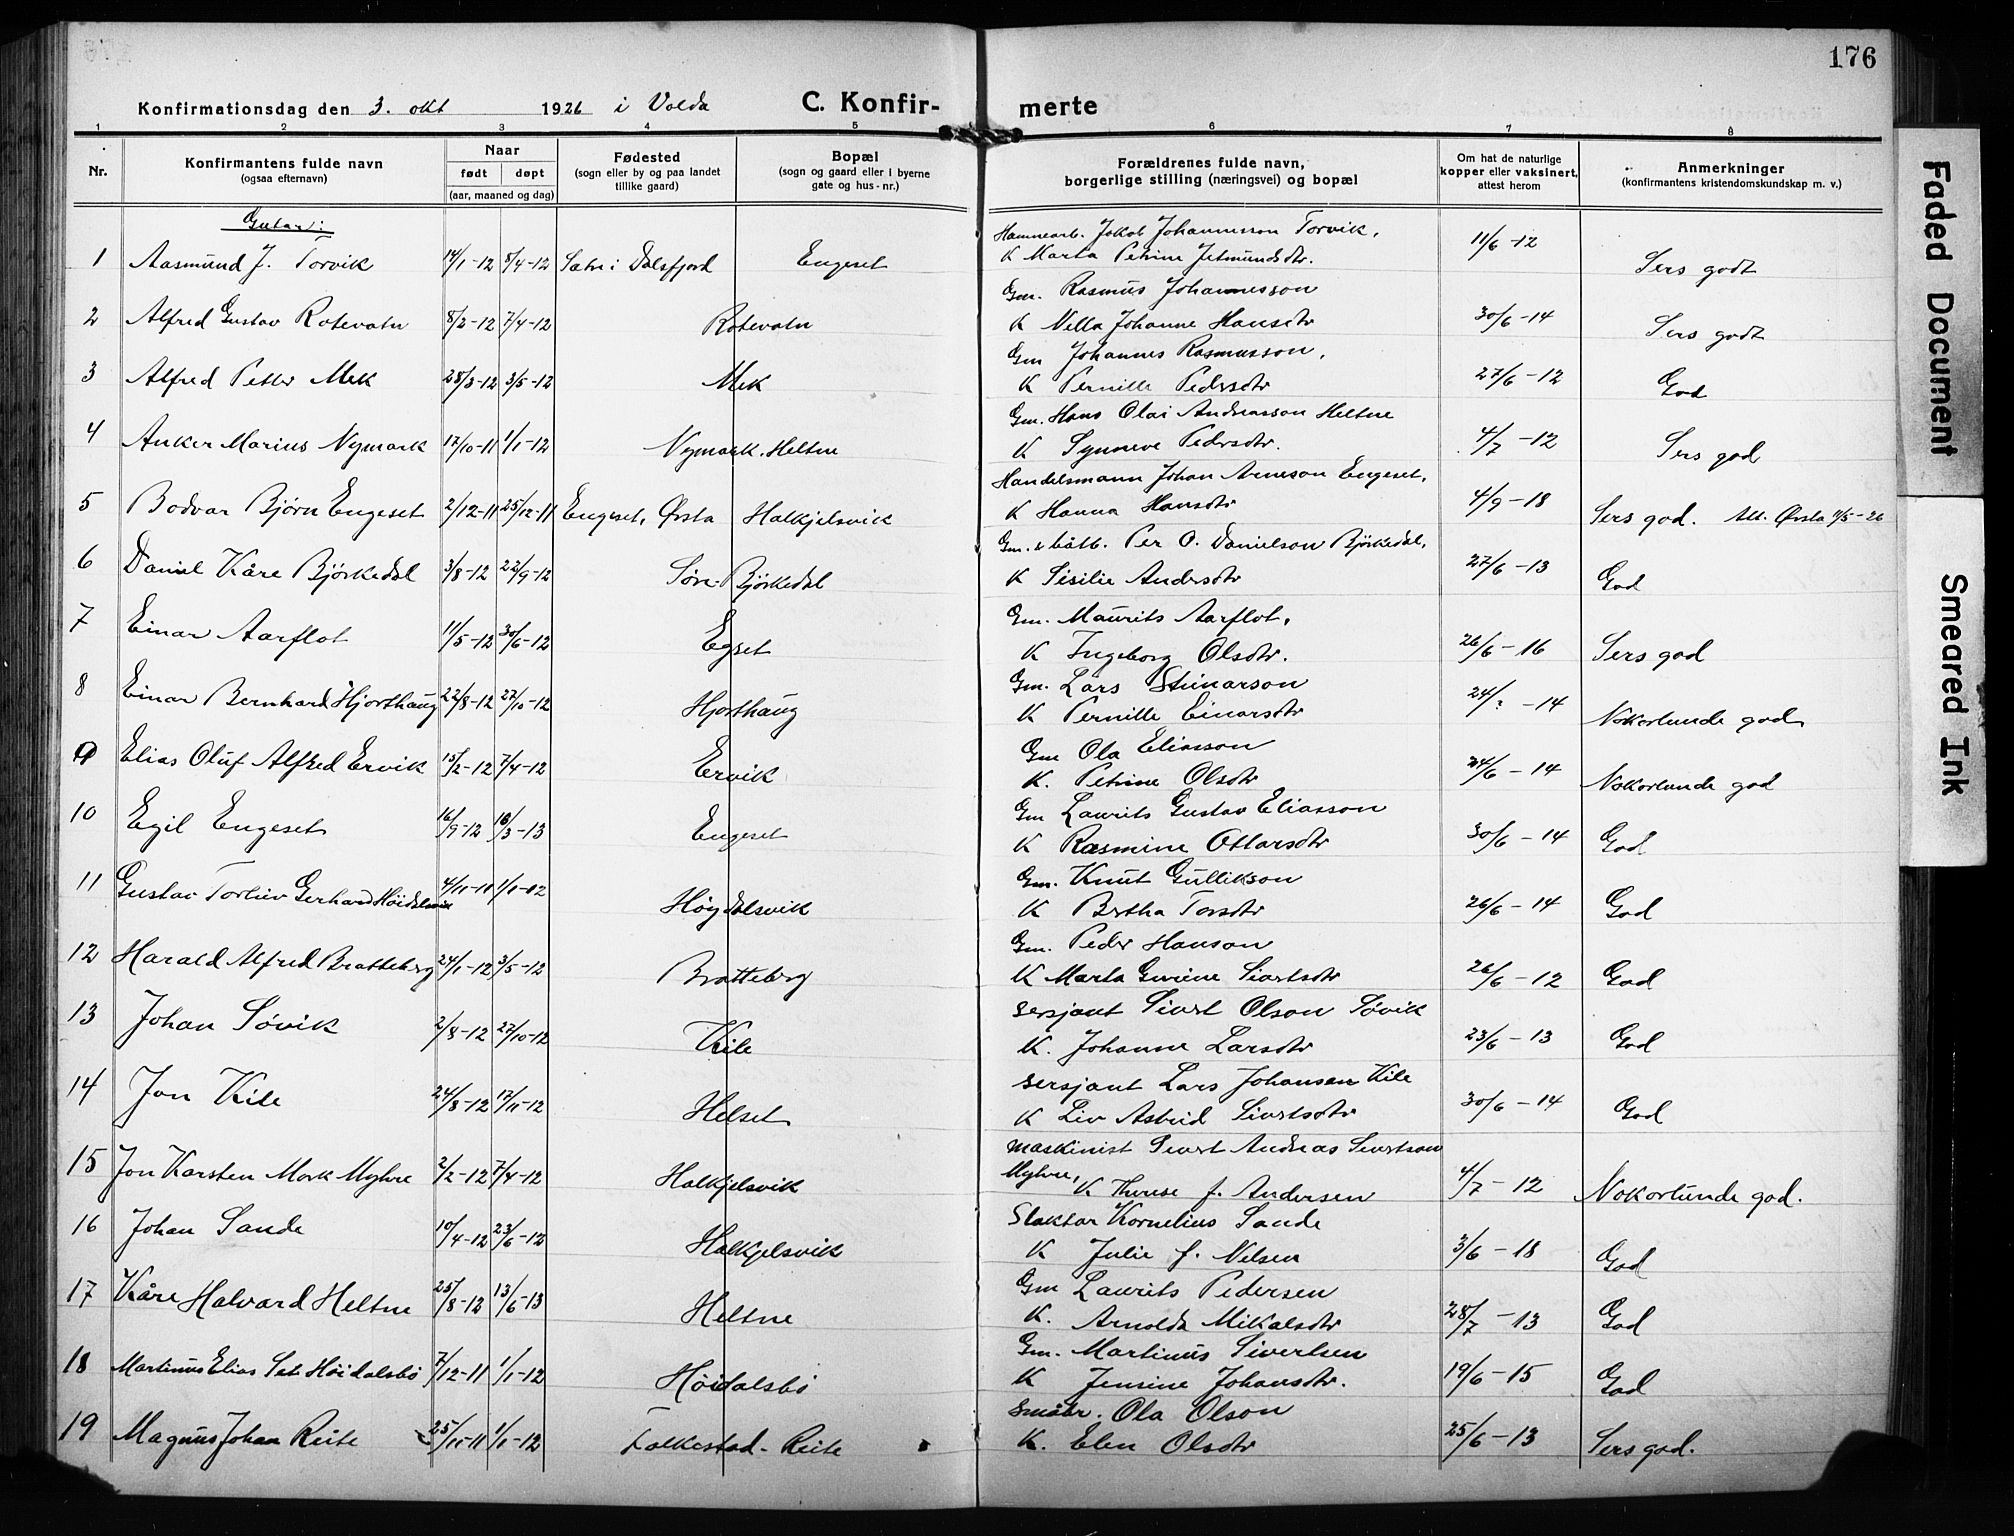 176
Konfirmationsdag den 3. okt 1926 i Volda C. Konfir- merte
1 2 3 4 5 6 7 8
Nr. Konfirmantens fulde navn (ogsaa efternavn) Naar født døpt (aar, maaned og dag) Fødested (sogn eller by og paa landet tillike gaard) Bopæl (sogn og gaard eller i byerne gate og hus-nr.) Forældrenes fulde navn, borgerlige stilling (næringsvei) og bopæl Om hat de naturlige kopper eller vaksinert, attest herom Anmerkninger (konfirmantens kristendomskundskap m. v.)
Gutar:
Hamnearb. Jakob Johannesson Torvik,
1 Aasmund J. Torvik 14/1-12 8/4-12 Sætre i Dalsfjord Engeset K Marta Petrine Jetmundsdtr. 11/6-12 Sers godt
Gm. Rasmus Johannesson
2 Alfred Gustav Rotevatn 8/2-12 7/4-12 Rotevatn K Nella Johanne Hansdtr 30/6-14 Sers godt
Gm Johannes Rasmusson,
3 Alfred Petter Mek 28/3-12 3/5-12 Mek K Pernille Pedersdtr 27/6-12 God
Gm. Hans Olai Andreasson Heltne
4 Anker Marius Nymark 17/10-11 1/1-12 Nymark, Heltne K Synneve Pedersdtr. 4/7-12 Sers god
Handelsmann Johan Arneson Engeset,
5 Bodvar Bjørn Engeset 2/12-11 25/12-11 Engeset, Ørsta Halkjelsvik K Hanna Hansdtr 4/9-18 Sers god. Att. Ørsta 11/5-26
Gm. & båtb. Per O. Danielson Bjørkedal,
6 Daniel Kåre Bjørkedal 3/8-12 22/9-12 Søre-Bjørkedal K Sisilie Andersdtr 27/6-13 God
Gm. Maurits Aarflot,
7 Einar Aarflot 11/5-12 30/6-12 Egset K Ingeborg Olsdtr. 26/6-16 Sers god
Gm. Lars Steinarson
8 Einar Bernhard Hjorthaug 22/8-12 27/10-12 Hjorthaug K Pernille Einarsdtr 24/?-14 Nokorlunde god
Gm Ola Eliasson
9 Elias Oluf Alfred Ervik 15/2-12 7/4-12 Ervik K. Petrine Olsdtr 24/6-14 Nokorlunde god
Gm Laurits Gustav Eliasson
10 Egil Engeset 16/9-12 16/3-13 Engeset K Rasmine Ottarsdtr 30/6-14 God
Gm. Knut Gullikson
11 Gustav Torleiv Gerhard Höidalsvik 4/11-11 1/1-12 Høydalsvik K Bertha Torsdtr 26/6-14 God
Gm. Peder Hanson
12 Harald Alfred Bratteberg 24/1-12 3/5-12 Bratteberg K Marta Gurine Sivertsdtr 26/6-12 God
Sersjant Sivert Olson Søvik
13 Johan Søvik 2/8-12 27/10-12 Kile K. Johanne Larsdtr 23/6-13 God
Sersjant Lars Johansen Kile
14 Jon Kile 24/8-12 17/11-12 Helset K Liv Astrid Sivertsdtr 30/6-14 God
Maskinist Sivert Andreas Sivertson
15 Jon Karsten Mork Myhre 2/2-12 7/4-12 Halkjelsvik Myhre, K Therese f. Andersen 4/7-12 Nokorlunde god.
Slaktar Kornelius Sande
16 Johan Sande 10/4-12 23/6-12 Halkjelsvik K Julie f. Nilsen 3/6-18 God
Gm Laurits Pedersen
17 Kåre Halvard Heltne 25/8-12 13/6-13 Heltne K. Arnolda Mikalsdtr 28/7-13 God
Gm. Martinus Sivertsen
18 Martinus Elias Set Höidalsbö 7/12-11 1/1-12 Höidalsbö K Jensine Johansdtr. 19/6-15 God
Småbr. Ola Olson
19 Magnus Johan Reite 25/11-11 1/1-12 Folkestad-Reite K. Elen Olsdtr 25/6-13 Sers god.
Faded Document
Smeared Ink